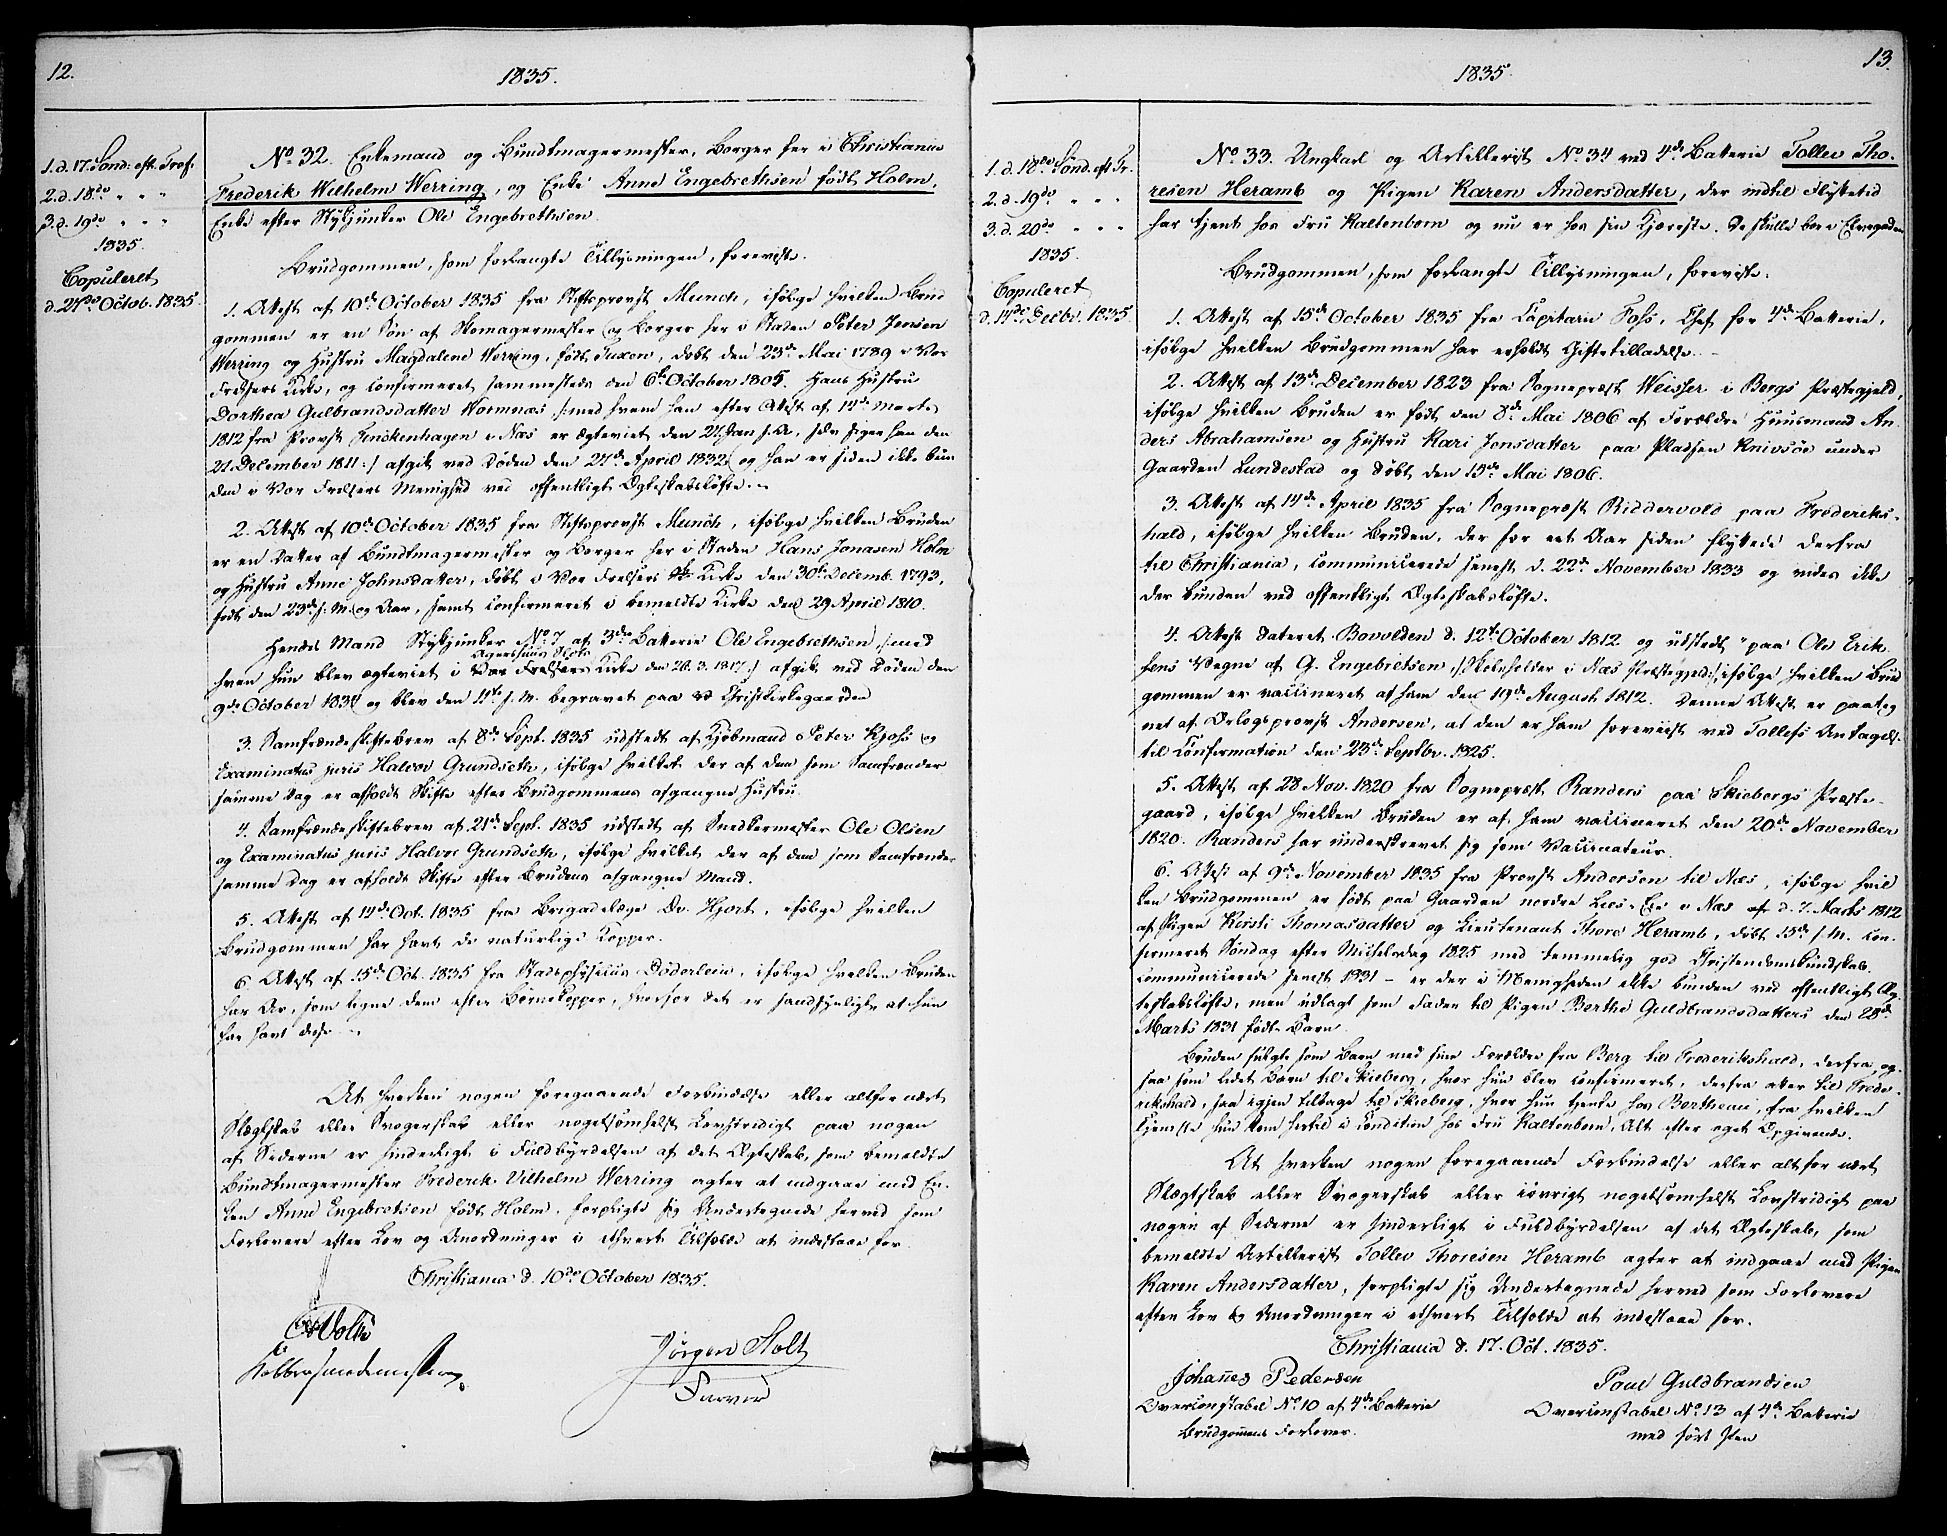 12.
1835.
1. d. 17. Sønd: eft. Tref.
2. d. 18de " " "
3. d. 19de " " "
1835.
Copuleret
d. 21de Octob. 1835.
No 32. Enkemand og Bundtmagermester, Borger her i Christiania
Frederik Wilhelm Werring, og Enke Anne Engebrethsen født Holm,
Enke efter Stykjunker Ole Engebrethsen.
Brudgommen, som forlangte Tillysningen, foreviste.
1. Attest af 10de October 1835 fra Stiftsprovst Munch, ifølge hvilken Brud
gommen er en Søn af Skomagermester og Borger her i Staden Peter Jensen
Werring og Hustru Magdalene Werring, født Tuxen, døbt den 23de Mai 1789 i Vor
Frelsers Kirke, og confirmeret sammesteds den 6te October 1805. Hans Hustru
Dorthea Gulbrandsdatter Wormnæs /: med hvem han efter Attest af 14de Marts
1812 fra Provst Finckenhagen i Næs er ægteviet den 21. Jan. s. A., selv siger han den
21. December 1811 :/ afgik ved Døden den 27de April 1832, og han er siden ikke bun
den i Vor Frelsers Menighed ved offentligt Ægteskabsløfte. —
2. Attest af 10de October 1835 fra Stiftsprovst Munch, ifølge hvilken Bruden
er en Datter af Bundtmagermester og Borger her i Staden Hans Jonasen Holm
og Hustru Anne Johnsdatter, døbt i Vor Frelsers Kirke den 30te Decemb. 1793,
født den 23de s. M. og Aar, samt confirmeret i bemeldte Kirke den 29 April 1810.
Hendes Mand Stykjunker No 7 af 3die Batterie Ole Engebrethsen /: med
Agershuus Slots
hvem hun blev ægteviet i Vor Frelsers Kirke den 26. 3. 1817 :/ afgik ved Døden den
9de October 1834 og blev den 14de s. M. begravet paa Christkirkegaarden
3. Samfrændeskiftebrev af 8de Sept. 1835 udstedt af Kjøbmand Peter Kjøss og
Examinatus juris Halvor Grundseth, ifølge hvilket der af dem som Samfrænder
samme Dag er afholdt Skifte efter Brudgommens afgangne Hustru.
4. Samfrændeskiftebrev af 21de Sept. 1835 udstedt af Snedkermester Ole Olsen
og Examinatus juris Halvor Grundseth, ifølge hvilket der af dem som Samfrænder
samme Dag er afholdt Skifte efter Brudens afgangne Mand.
5. Attest af 14de Oct. 1835 fra Brigadelæge Dr. Hjort, ifølge hvilken
Brudgommen har havt de naturlige Kopper.
6. Attest af 15de Oct. 1835 fra Stadsphysicus Döderlein, ifølge hvilken Bruden
har Ar, som ligne dem efter Børnekopper, hvorfor det er sandsynligt at hun
har havt disse. —
At hverken nogen foregaaende Forbindelse eller altfor nært
Slægtskab eller Svogerskab eller nogetsomhelst Lovstridigt paa nogen
af Siderne er hinderligt i Fuldbyrdelsen af det Ægteskab, som bemeldte
Bundtmagermester Frederik Vilhelm Werring agter at indgaae med En-
ken Anne Engebretsen født Holm, forpligte sig Undertegnede herved som
Forlovere efter Lov og Anordninger i ethvert Tilfælde at indestaae for.
Christiania d. 10de October 1835.
Jørgen Holt
Farver
13.
1835.
1. d. 18de Sønd. eft. Tr.
2. d. 19de " " "
3. d. 20de " " "
1835.
Copuleret
d. 14de Decbr. 1835.
No 33. Ungkarl og Artillerist No 34 ved 4de Batterie Tollev Tho-
resen Heramb og Pigen Karen Andersdatter, der indtil Flyttetid
har tjent hos Fru Kaltenborn og nu er hos sin Kjæreste. De skulle boe i Elvegaden
Brudgommen, som forlangte Tillysningen, foreviste.
1. Attest af 15de October 1835 fra Capitain Foss, Chef for 4de Batterie,
ifølge hvilken Brudgommen har erholdt Giftetilladelse. —
2. Attest af 13de December 1823 fra Sognepræst Weisser i Bergs Præstegjeld,
ifølge hvilken Bruden er født den 8de Mai 1806 af Forældre Huusmand An-
ders Abrahamsen og Hustru Kari Jonsdatter paa Pladsen Knivsøe under
Gaarden Lundestad og døbt den 15de Mai 1806.
3. Attest af 14de April 1835 fra Sognepræst Riddervold paa Frederiks-
hald, ifølge hvilken Bruden, der for eet Aar siden flyttede derfra
til Christiania, communicerede senest d. 22de November 1833 og vides ikke
der bunden ved offentligt Ægteskabsløfte.
4. Attest dateret Bovolden d. 12te October 1812 og udstedt "paa Ole Erik-
sens Vegne af G. Engebretsen /: Skoleholder i Næs Præstegjeld :/ ifølge hvilken Brud
gommen er vaccineret af ham den 19de August 1812. Denne Attest er paateg
net af Orlogsprovst Andersen, at den er ham foreviist ved Tollefs Antagels.
til Confirmation den 23de Septbr. 1825.
5. Attest af 28 Nov. 1820 fra Sognepræst Randers paa Skiebergs Præste-
gaard, ifølge hvilken Bruden er af ham vaccineret den 20de November
1820. Randers har underskrevet sig som Vaccinateur.
6. Attest af 9de November 1835 fra Provst Andersen til Næs, ifølge hvil
ken Brudgommen er født paa Gaarden nordre Lies-Eie i Næs d. 7. Marts 1812
af Pigen Kirsti Thomasdatter og Lieutenant Thore Heramb, døbt 15de s. M. con-
firmeret Søndag efter Michelsdag 1825 med temmelig god Christendomskundskab.
communicerede senest 1831 – er der i Menigheden ikke bunden ved offentligt Æg-
teskabsløfte, men udlagt som Fader til Pigen Berthe Guldbrandsdatters den 28de
Marts 1831 fødte Barn.
Bruden fulgte som Barn med sine Forældre fra Berg til Frederikshald, derfra og-
saa som lidet Barn til Skieberg, hvor hun blev confirmeret, derfra atter til Frede-
rikshald, saa igjen tilbage til Skieberg, hvor hun tjente hos Bertheau, fra hvilken
Tjeneste hun kom hertil i Condition hos Fru Kaltenborn, Alt efter eget Opgivende.
At hverken nogen foregaaende Forbindelse eller altfor nært
Slægtskab eller Svogerskab eller iøvrigt nogetsomhelst Lovstridigt paa
nogen af Siderne er hinderligt i Fuldbyrdelsen af det Ægteskab, som
bemeldte Artillerist Tollev Thoresen Heramb agter at indgaae med Pigen
Karen Andersdatter, forpligte sig Undertegnede herved som Forlovere
efter Lov og Anordninger i ethvert Tilfælde at indestaae for.
Christiania d. 17. Oct. 1835.
Johannes Pedersen
Overconstabel No 10 af 4de Batterie
Brudgommens Forlover.
Poul Guldbrandsen
Overconstabel No 13 af 4de Batterie
med ført Pen